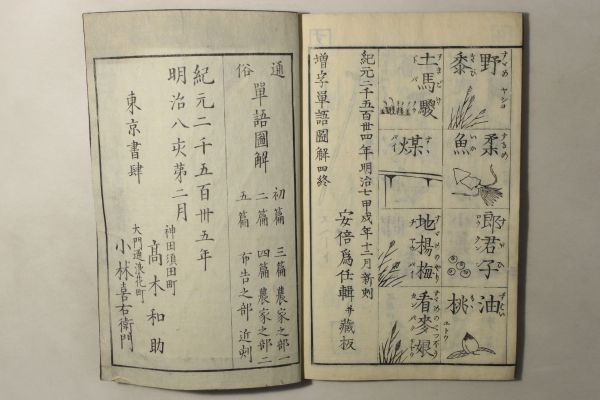 野黍
柔魚
郎君子
油桃
土馬騣
煤
地楊梅
看麥娘
紀元二千五百卅四年明治七甲戌年十二月新刻
安倍爲任輯并藏板
増字單語圖解四終
通俗 單語圖解
初篇 三篇 農家之部一
二篇 四篇 農家之部二
五篇 布告之部 近刻
紀元二千五百卅五年
明治八亥第二月
東京書肆
神田須田町
高木和助
大門通浪花町
小林喜右衛門